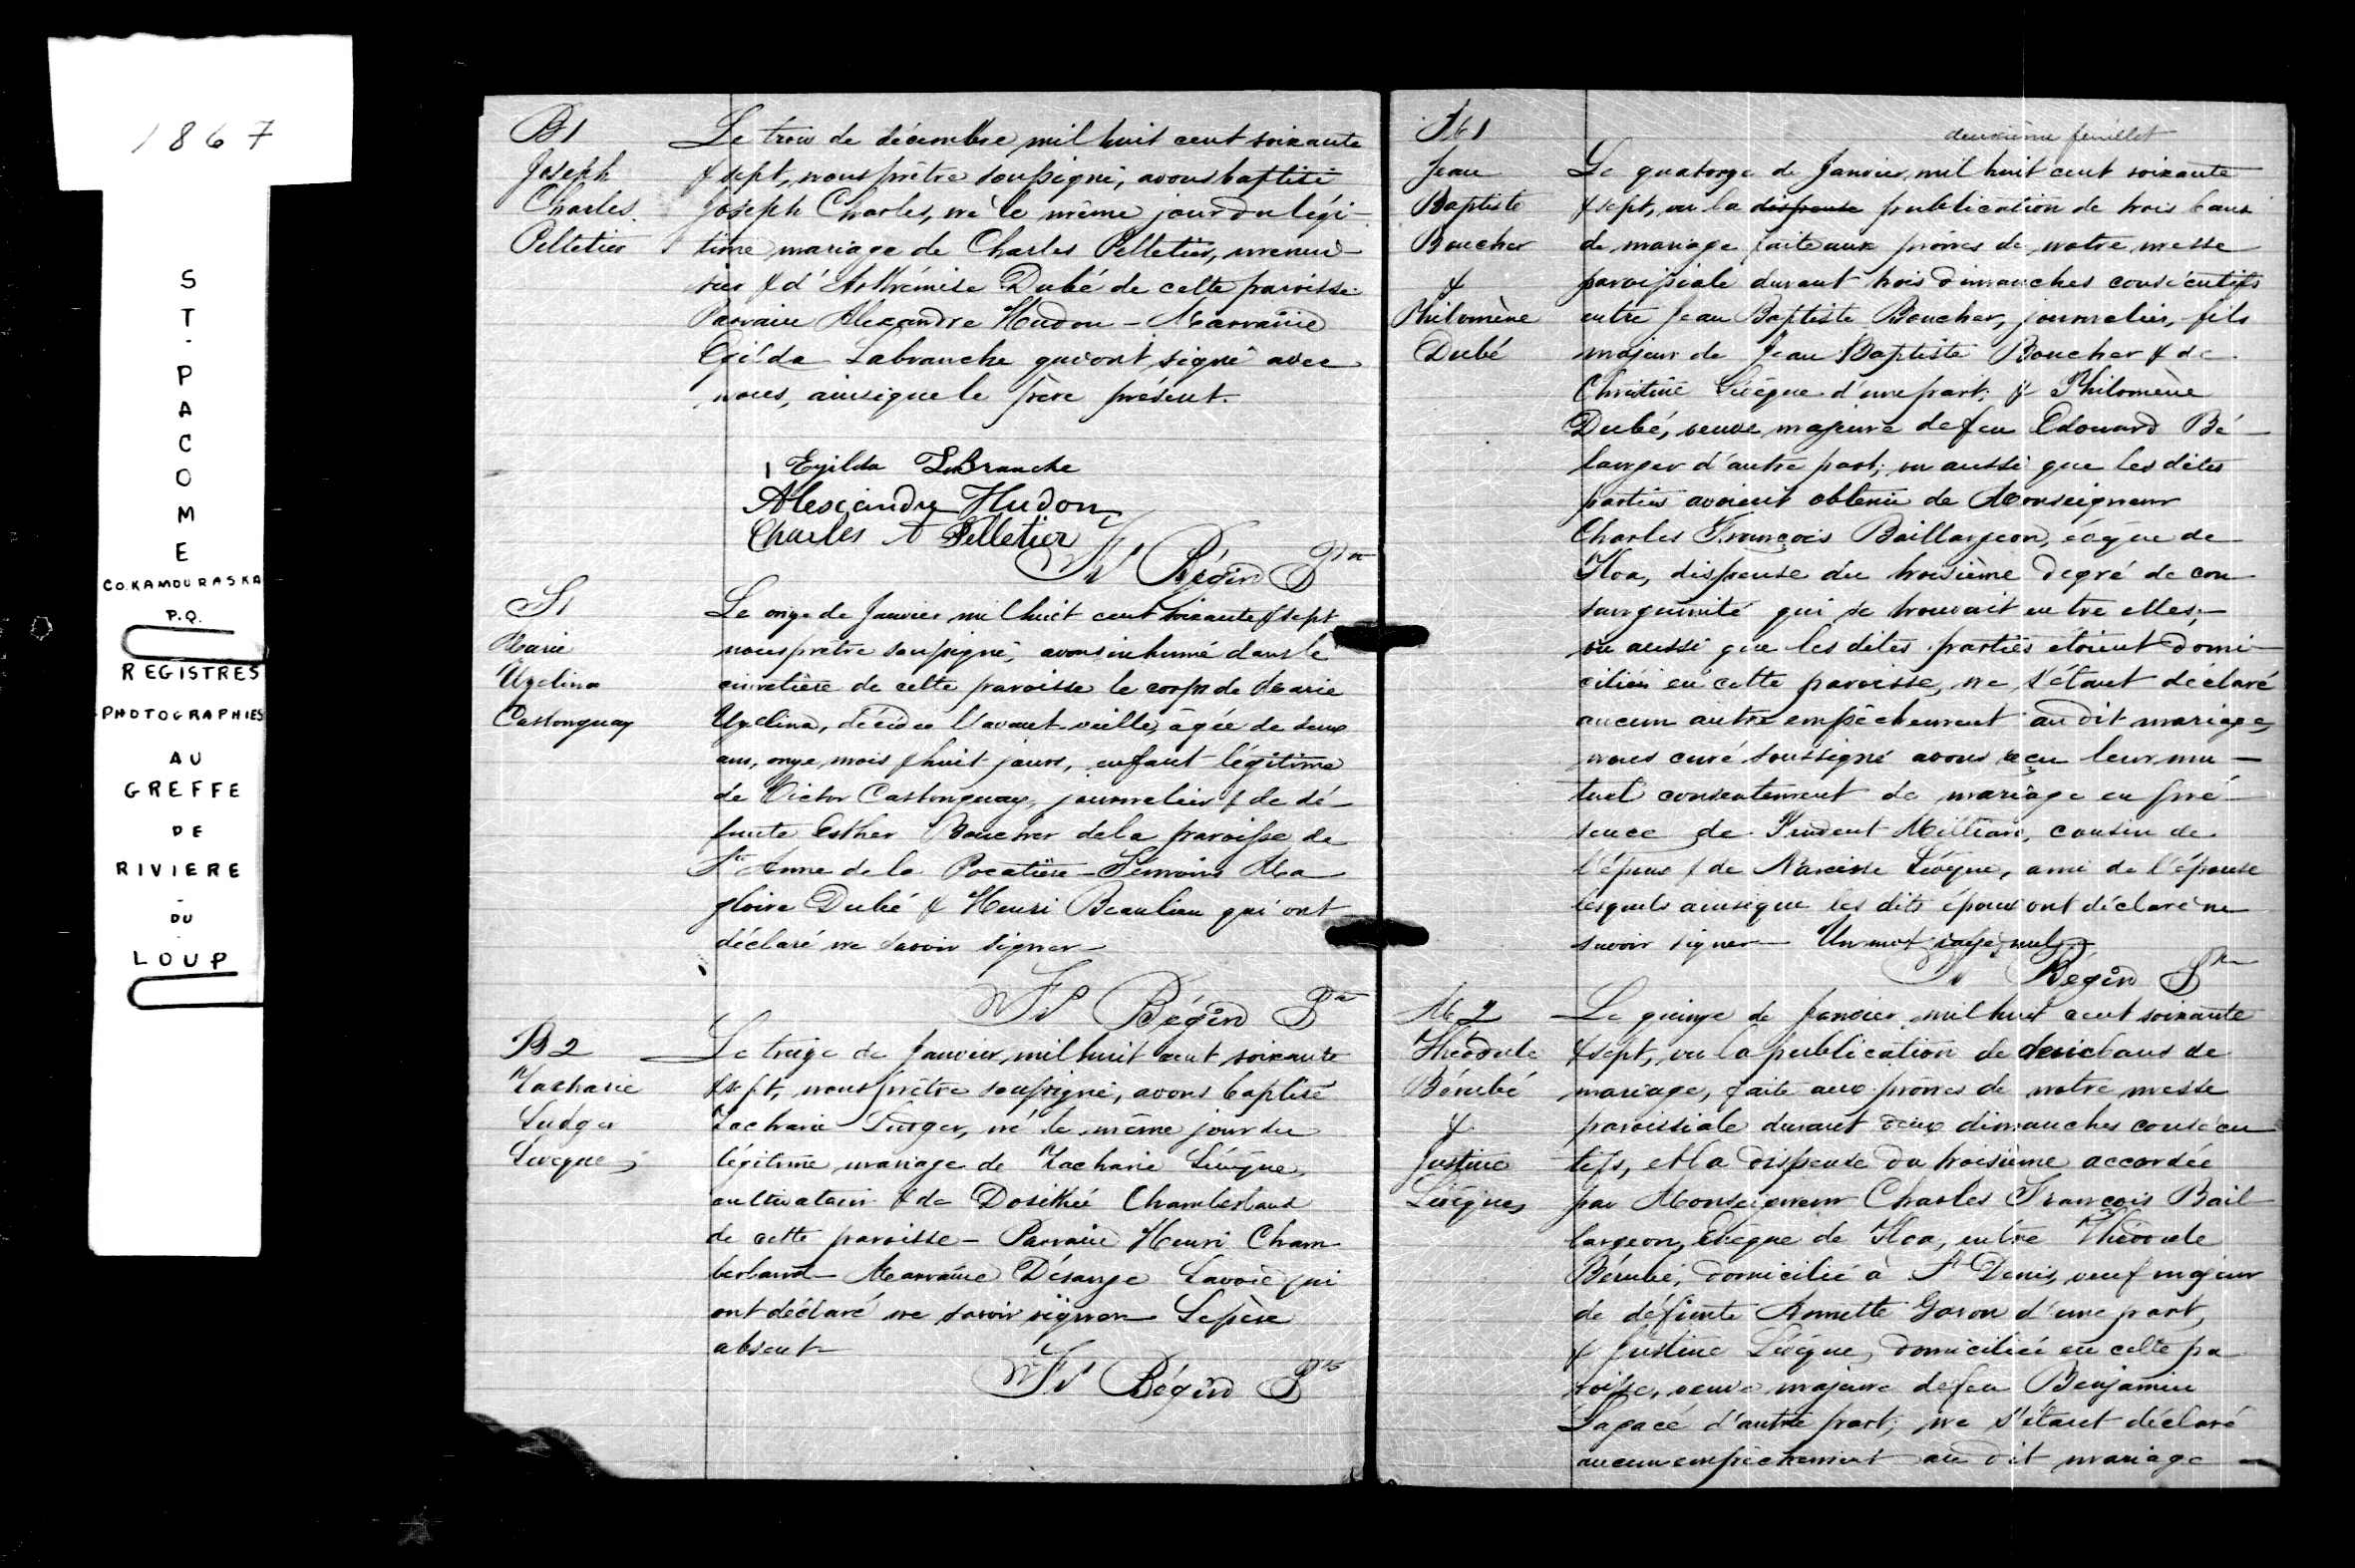 1867
ST-PACOME
CO.KAMOURASKA
P.Q.
REGISTRES
PHOTOGRAPHIES
AU
GREFFE
DE
RIVIERE
-
DU
LOUP
B1
Joseph
Charles
Pelletier
Le trois de décembre mil huit cent soixante
& sept, nous prêtre soussigné, avons baptisé
Joseph Charles, né le même jour du légi-
time mariage de Charles Pelletier, menui-
sier & d'Arthémise Dubé de cette paroisse
Parrain Alexandre Hudon - Marraine
Labranche qui ont signé avec
nous, ainsi que le père présent.
Exilda LaBranche
Alexandre Hudon
Charles A Pelletier
Bégin Ptre
S1
Marie
Uzelina
Castonguay
Le onze de Janvier mil huit cent soixante & sept
nous prêtre soussigné, avons inhumé dans le
cimetière de cette paroisse le corps de Marie
Uzelina, décédée l'avant-veille, âgée de deux
ans, onze mois & huit jours, enfant légitime
de Victor Castonguay, journalier & de dé-
funte Esther Boucher de la paroisse de
Ste Anne de la Pocatière - Témoins Ma
gloire Dubé & Henri Beaulieu qui ont
déclaré ne savoir signer
Bégin Ptre
B2
Zacharie
Ludger
Levêque
Le treize de Janvier mil huit cent soixante
& sept, nous prêtre soussigné, avons baptisé
Zacharie Ludger, né le même jour du
légitime mariage de Zacharie Lévêque,
cultivateur & de Dosithée Chamberland
de cette paroisse - Parrain Henri Cham
berland - Marraine Désange Lavoie qui
ont déclaré ne savoir signer Le père
absent
Bégin Ptre
deuxième feuillet
M1
Jean
Baptiste
Boucher
&
Philomène
Dubé
Le quatorze de Janvier mil huit cent soixante
& sept, vu la dispense publication de trois bans
de mariage faite aux prônes de notre messe
paroissiale durant trois dimanches consécutifs
entre Jean Baptiste Boucher, journalier, fils
majeur de Jean Baptiste Boucher & de
Christine Lévêque d'une part; & Philomène
Dubé, veuve majeure de feu Edouard Bé-
langer d'autre part; vu aussi que les dites
parties avoient obtenu de Monseigneur
Charles François Baillargeon, évêque de
Tloa, dispense du troisième degré de con
sanguinité qui se trouvait entre elles;
vu aussi que les dites parties étoient domi-
ciliées en cette paroisse, ne s'étant déclaré
aucun autre empêchement au dit mariage,
nous curé soussigné avons reçu leur mu-
tuel consentement de mariage en pré-
sence de Prudent Milliard, cousin de
l'époux & de Narcisse Lévêque, ami de l'épouse
lesquels ainsi que les dits époux ont déclaré ne
savoir signer - Un mot rayé nul
Bégin Ptre
M2
Théodule
Bérubé
&
Justine
Lévêque
Le quinze de Janvier mil huit cent soixante
& sept, vu la publication de deux bans de
mariage, faite aux prônes de notre messe
paroissiale durant deux dimanches consécu
tifs, et la dispense du troisième accordée
par Monseigneur Charles François Bail
largeon, Evêque de Tloa, entre Théodule
Bérubé, domicilié à St Denis, veuf majeur
de défunte Annette Garon d'une part,
& Justine Lévêque, domiciliée en cette pa
roisse, veuve majeure de feu Benjamin
Lagacé d'autre part; ne s'étant déclaré
aucun empêchement au dit mariage